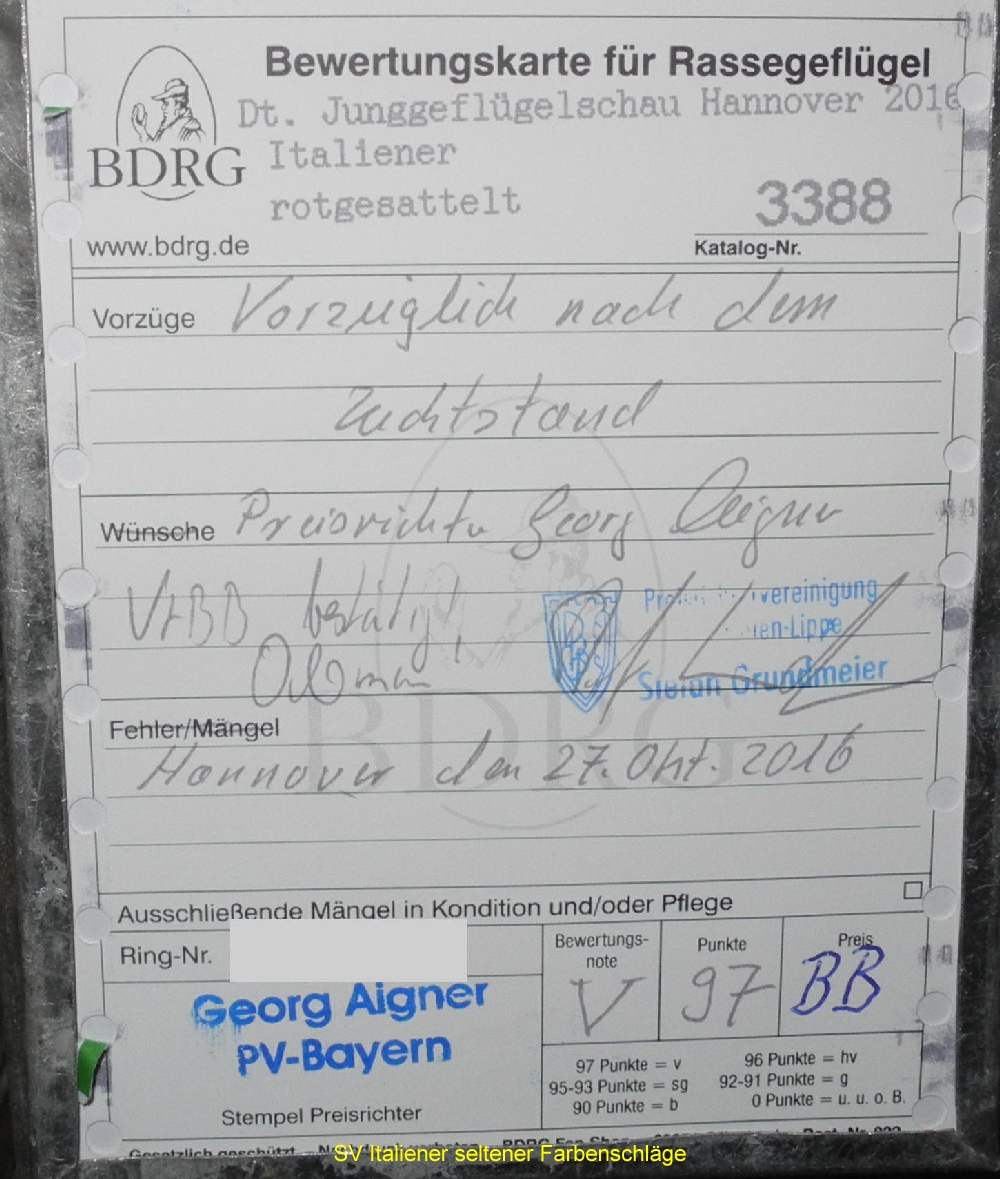 Bewertungskarte für Rassegeflügel
Dt. Junggeflügelschau Hannover 2016
BDRG
Italiener
rotgesattelt
3388
www.bdrg.de
Katalog-Nr.
Vorzüge Vorzüglich nach dem
Zuchtstand
Wünsche Preisrichter Georg Aigner
V+BB bestätigt,
vereinigung
en-Lippe
Stefan Grundmeier
BDRG
Fehler/Mängel
Hannover den 27. Okt. 2016
Ausschließende Mängel in Kondition und/oder Pflege
Ring-Nr.
Bewertungs-
note
Punkte
Preis
V 97 BB
Georg Aigner
PV-Bayern
97 Punkte = v 96 Punkte = hv
95-93 Punkte = sg 92-91 Punkte = g
90 Punkte = b 0 Punkte = u. u. o. B.
Stempel Preisrichter
Gesetzlich geschützt
SV Italiener seltener Farbenschläge